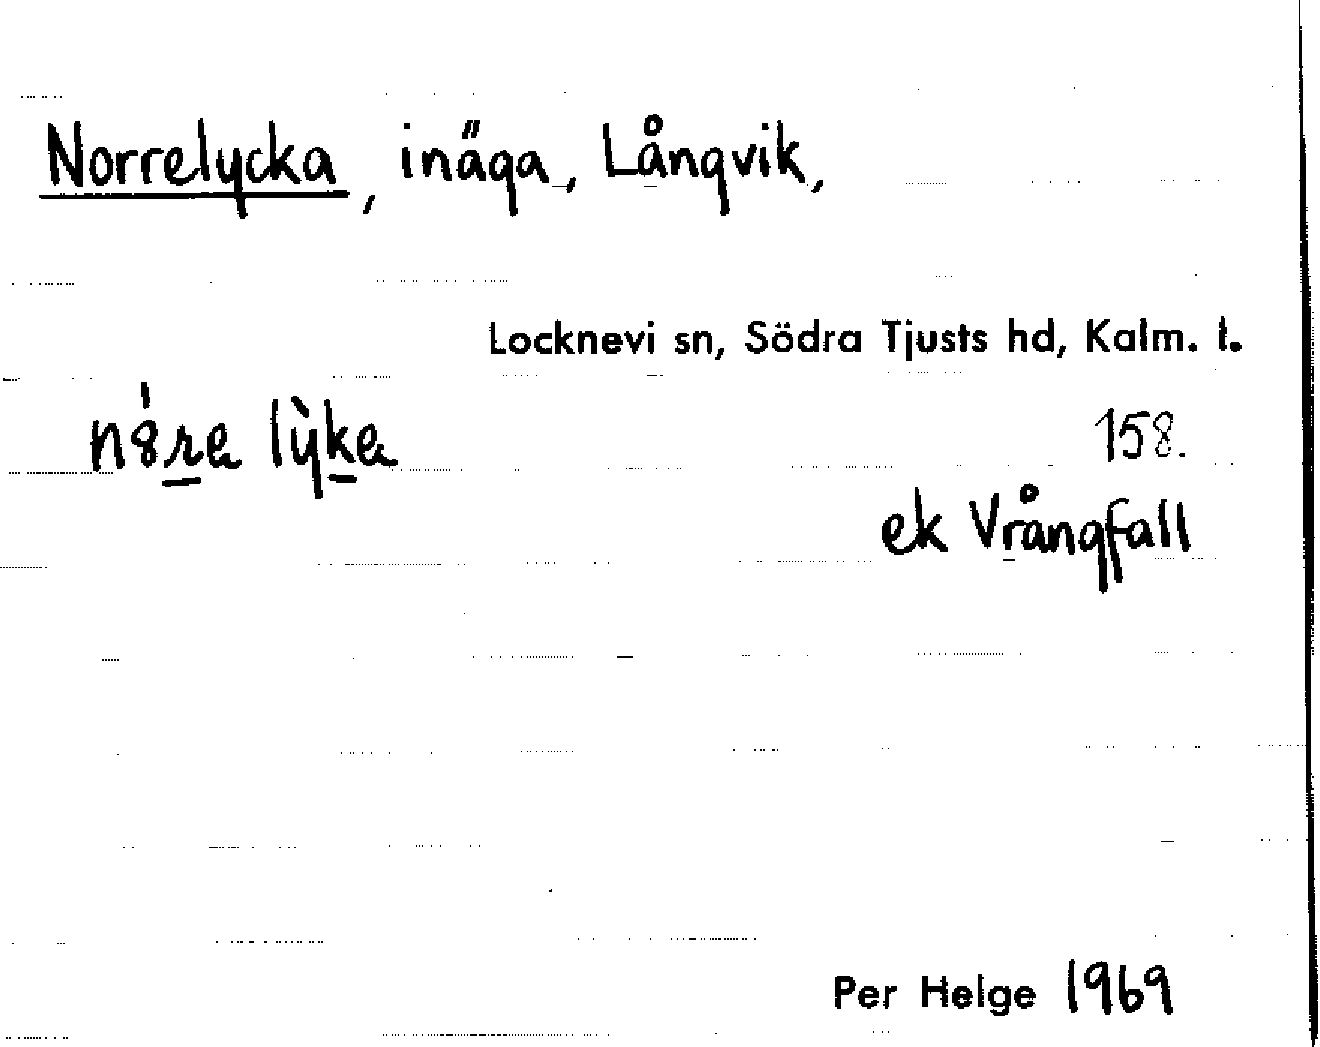 Norrelycka, inäga, Långvik,
Locknevi sn, Södra Tjusts hd, Kalm. l.
158.
ek Vrångfall
Per Helge 1969